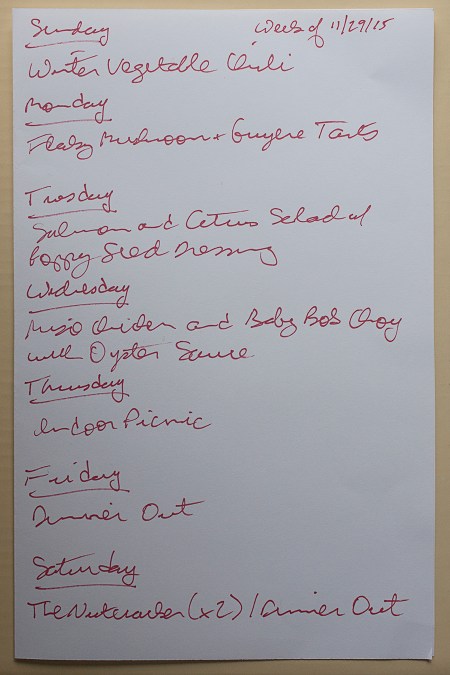 Sunday Week of 11/29/15
Winter Vegetable Chili
Monday
Flaky Mushroom + Gruyere Tarts
Tuesday
Salmon and Citrus Salad w/
Poppy Seed Dressing
Wednesday
Miso Chicken and Baby Bok Choy
with Oyster Sauce
Thursday
Indoor Picnic
Friday
Dinner Out
Saturday
The Nutcracker (x2) / Dinner Out